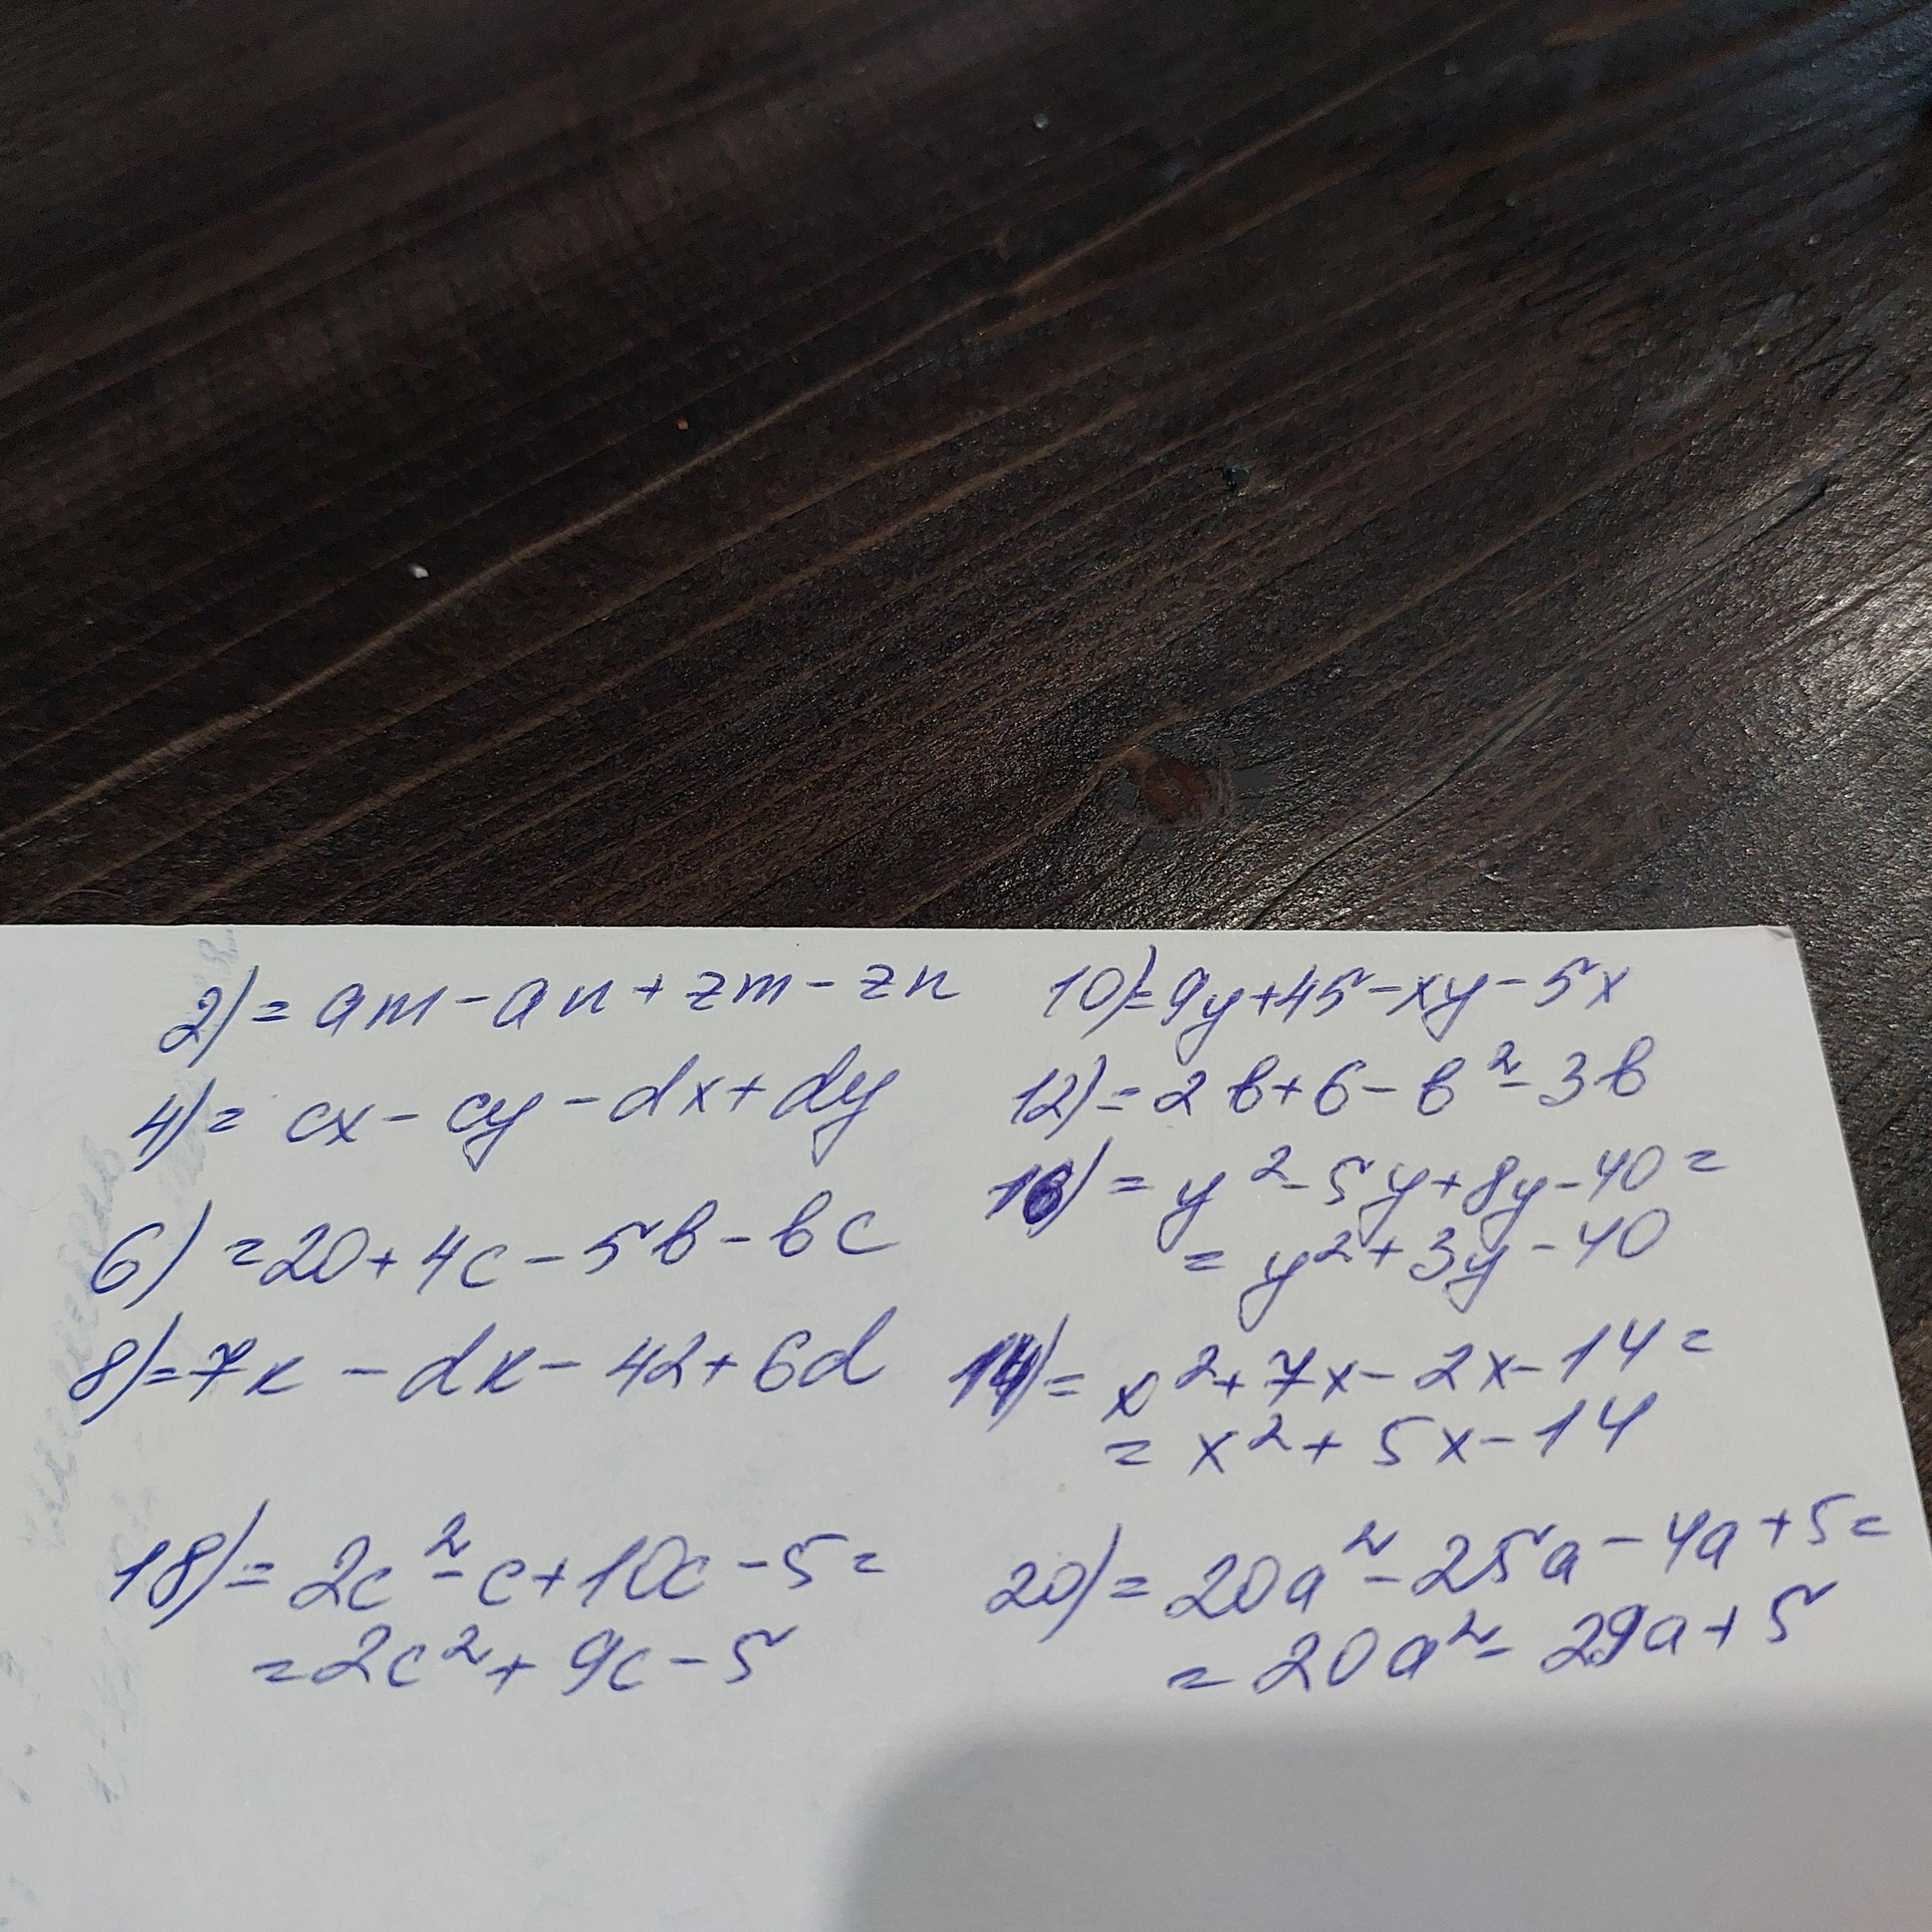 2) = am - an + zm - zn
4) = cx - cy - dx + dy
6) = 20 + 4c - 5b - bc
8) = 7k - dk - 42 + 6d
18) = 2c² - c + 10c - 5 =
= 2c² + 9c - 5
10) = 9y + 45 - xy - 5x
12) = 2b + 6 - b² - 3b
16) = y² - 5y + 8y - 40 =
= y² + 3y - 40
14) = x² + 7x - 2x - 14 =
= x² + 5x - 14
20) = 20a² - 25a - 4a + 5 =
= 20a² - 29a + 5